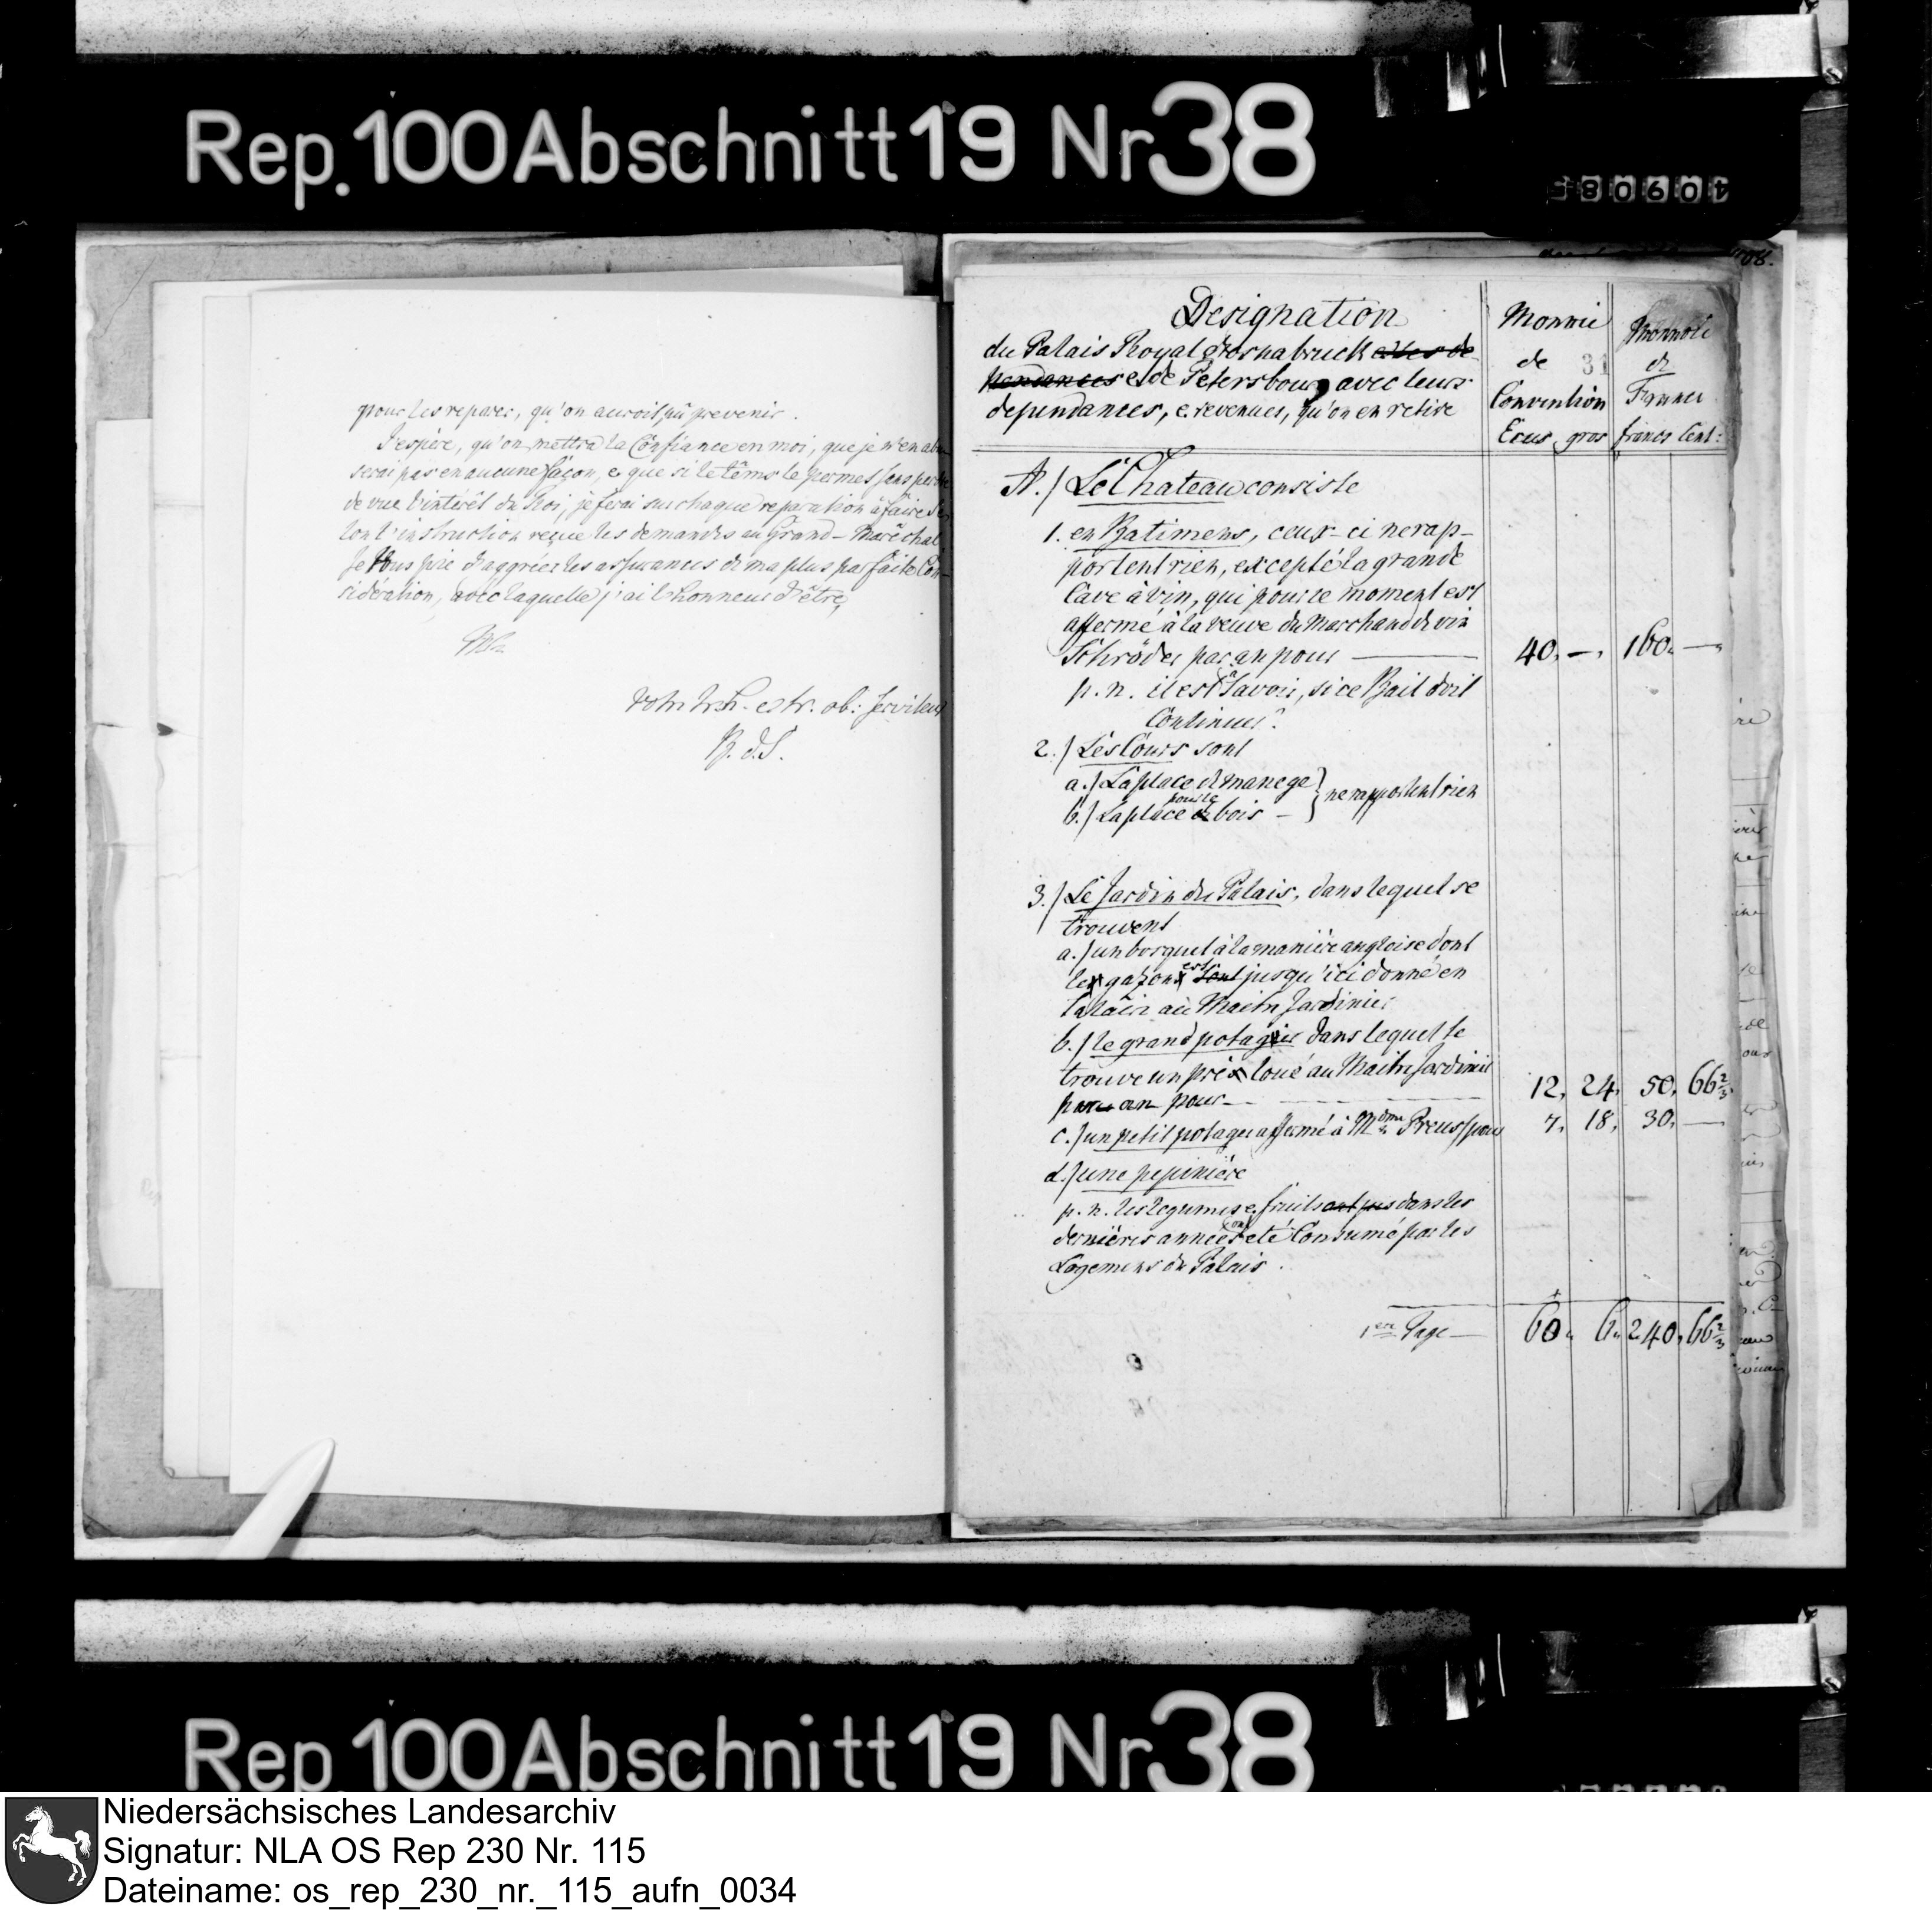 Rep. 100 Abschnitt 19 Nr 38
pour les reparer, qu'on auroit pû prevenir.
J'espère, qu'on mettra la Confiance en moi, que je n'en abu-
serai pas en aucune façon, e que si le têms le permet sans perdre
de vue l'intérêt du Roi, je ferai sur chaque reparation à faire se
lon l'instruction reçue les demandes au Grand-Maréchal
Je Vous prie d'aggréer les assurances de ma plus parfaite Con-
sidération, avec laquelle j'ai l'honneur d'être,
votre tr. h. e tr. ob: serviteur
B. d. S.
31
Designation
du Palais Royal d'Osnabruck et ses de
pendances e de Petersbourg avec leurs
dependances, e. revenues, qu'on en retire
Monnie de Convention
Ecus gros
Monnoie de France
francs Cent:
A.) Le Chateau consiste
1. en Batimens, ceux-ci nerap-
portent rien, excepté la grande
Cave à vin, qui pour ce moment est
affermé à la veuve du Marchand de vin
Schröder par an pour — 40, —, 160, —,
p. n. il est à Savoir, si ce Bail doit
Continuer?
2.) Les Cours sont
a.) La place de manege
b.) La place de pour le bois — } ne rapportent rien
3.) Le Jardin du Palais, dans lequel se
trouvent
a.) un bosquet à la manière angloise dont
les gazons sont est jusqu'ici donné en
Salaire au Maitre Jardinier
b.) le grand potagier dans lequel se
trouve un pré loué au Maitre Jardinier
par an pour — 12, 24, 50, 66 2/3
c.) un petit potager affermé à Mdme Preuss pour 7, 18, 30, —
d.) une pepinière
p. n. les legumes e. fruits ont dans les
dernières années ont eté Consumé par les
Logemens du Palais.
1ere Page — 60, 6, 240, 66 2/3
Rep. 100 Abschnitt 19 Nr 38
Niedersächsisches Landesarchiv
Signatur: NLA OS Rep 230 Nr. 115
Dateiname: os_rep_230_nr._115_aufn_0034